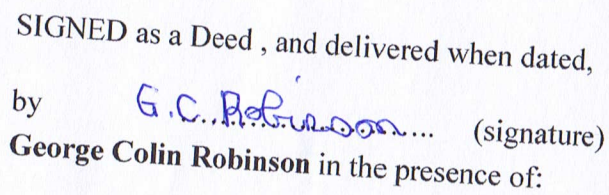 SIGNED as a Deed , and delivered when dated,
by G.C. Robinson... (signature)
George Colin Robinson in the presence of: